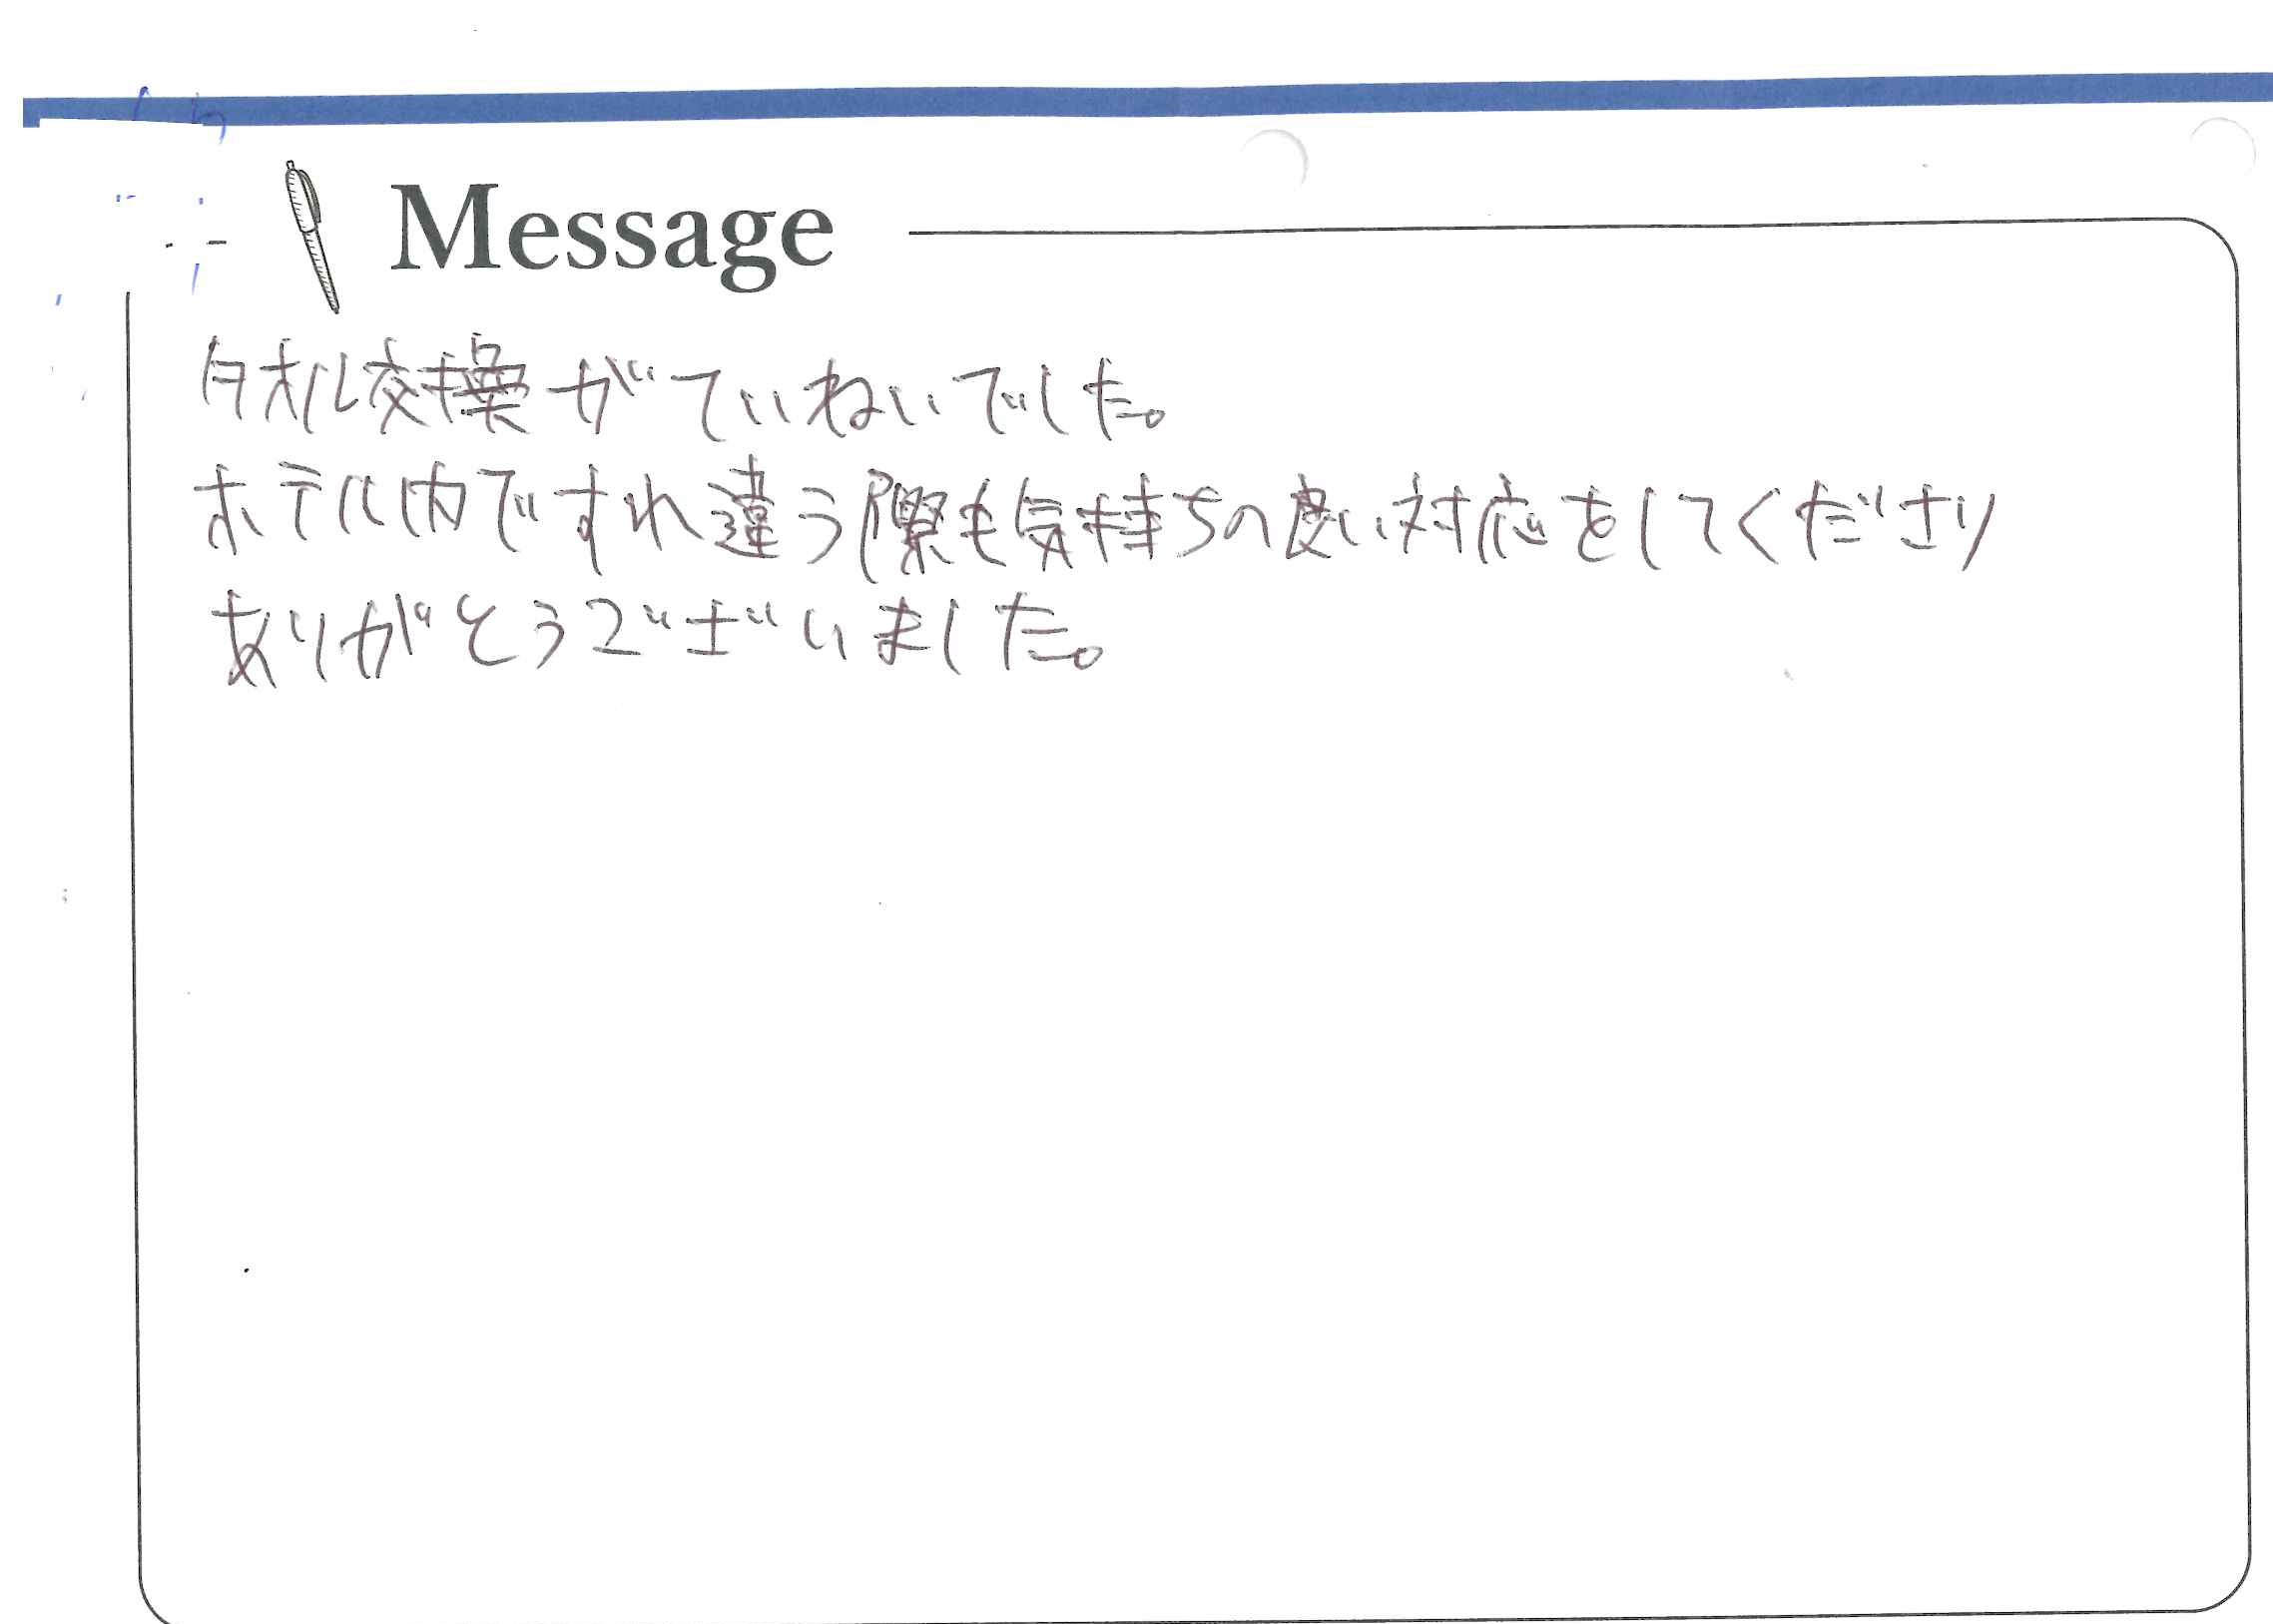 Message
タオル交換がていねいでした。
ホテル内ですれ違う際も気持ちの良い対応をしてくださり
ありがとうございました。